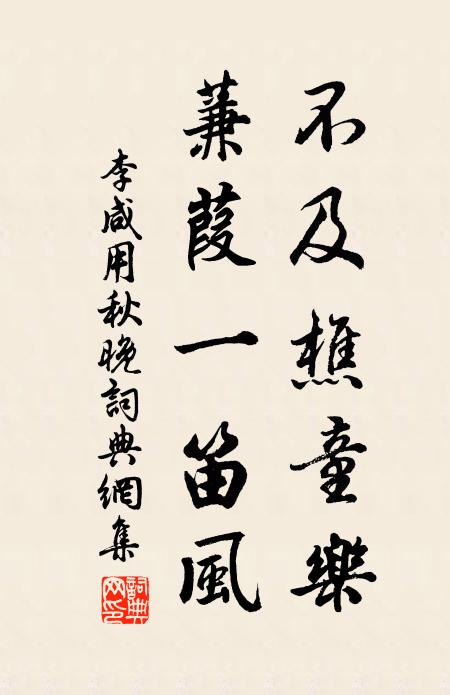 不及樵童樂
蒹葭一笛風
李咸用秋晚詞典網集
詞典網印